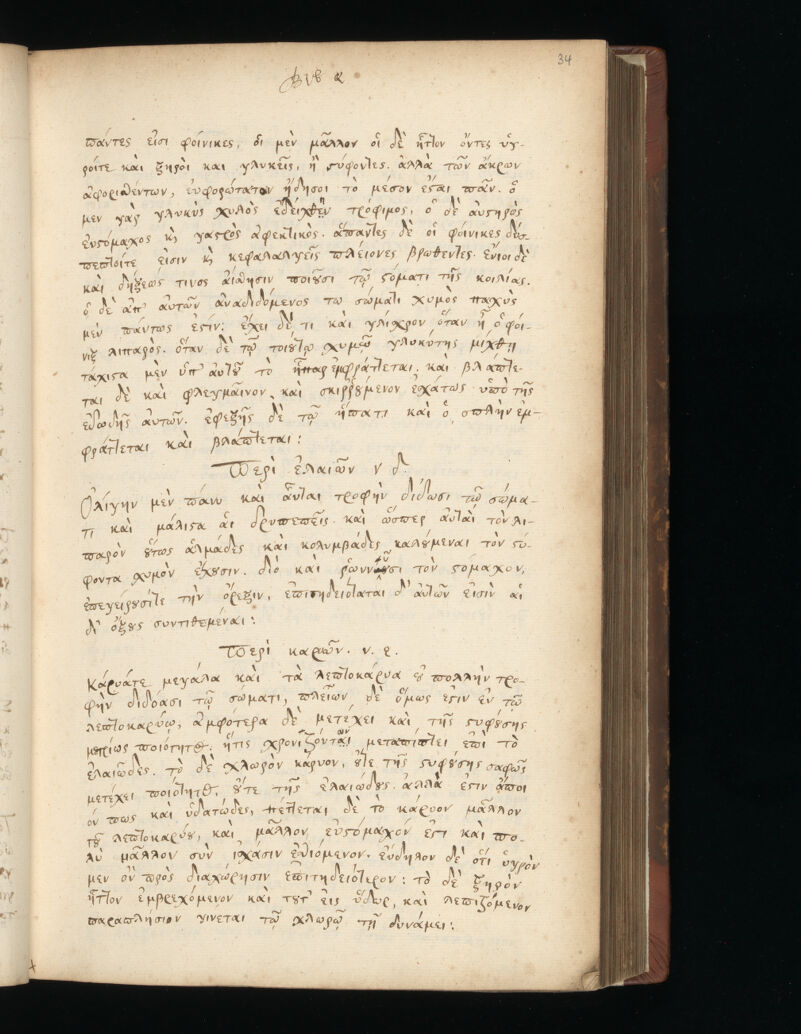 34
Βιβ α
πάντες εἰσι φοίνικες, οἱ μὲν μᾶλλον οἱ δὲ ἧττον ὄντες ὑγ-
ροίτε καὶ ξηροὶ και γλυκεῖς, ἢ στύφοντες. ἀλλὰ τῶν ἄκρων
ἀφορισθέντων, τὸ μέσον πᾶν. ὁ
μεν γὰρ γλυκὺς χυλὸς ἐδείχθη τρόφιμος, ὁ δὲ αὐστηρὸς
εὐστόμαχος κὶ γαστρὸς ἀφεκτικὸς. ἅπαντες δὲ οἱ φοίνικες δύσ-
πεπτοίτε εἰσιν κὶ κεφαλαλγεῖς πλείονες βρωθέντες. ἔνιοι δὲ
καὶ δήξεώς τινος αἴσθησιν ποιοῦσι τῷ στόματι τῆς κοιλίας.
ὁ δὲ ἀπ' αὐτῶν ἀναδιδόμενος τω σώματι χυμὸς παχὺς
μὲν πάντως ἐστίν: ἔχει δέ τι καὶ γλίσχρον ὅταν ᾖ ὁ φοί-
νιξ λιπαρὸς. ὅταν δὲ τῷ τοιούτῳ χυμῷ γλυκύτης μίχθῃ
τάχιστα μὲν ὑπ' αὐτοῦ τὸ ἧπαρ ἐμφράττεται, καὶ βλάπτε-
ται δὲ καὶ φλεγμαῖνον, καὶ σκιρρούμενον ἐσχάτως ὑπὸ τῆς
ἐδωδῆς αὐτῶν. ἐφεξῆς δὲ τῷ ἥπατι καὶ ὁ σπλὴν ἐμ-
φράττεται καὶ βλάπτεται:
Περὶ ἐλαιῶν ν δ.
Ὀλίγην μὲν πάνυ καὶ αὗται τροφὴν δίδωσι τῷ σώμα-
τι καὶ μάλιστα ἁι δρυπεπεῖς. καὶ ὥσπερ αὐταὶ τὸν λι-
παρὸν οὕτως ἁλμάδες καὶ κολυμβάδες καλούμεναι τὸν στύ-
φοντα χυμὸν ἔχουσιν. διὸ καὶ ῥωννύουσι τον στόμαχον,
ἐπεγείρουσίτε τὴν ὄρεξιν, ἐπιτηδειόταται δ' αὐτῶν εἰσὶν αἱ
δι' ὄξους συντιθεμέναι:
Περὶ καρύων. ν. ε.
Κάρυάτε μεγάλα καὶ τὰ λεπτοκάρυα οὐ πολλὴν τρο-
φὴν διδόασι τῷ σώματι, πλείων δὲ ὅμως ἐστιν ἐν τῷ
λεπτοκαρύῳ, ἀμφότερα δὲ μετέχει καὶ τῆς στυφούσης
μετρίως ποιότητος. ἥτις χρονιζόντων μεταπίπτει ἐπὶ τὸ
ἐλαιῶδες. τὸ δὲ χλωρὸν κάρυον, οὔτε τῆς στυφούσης σαφῶς
μετέχει ποιότητος, οὔτε τῆς ἐλαιώδους. ἀλλὰ ἐστιν ἄποι
όν πως καὶ ὑδατώδες, πέττεται δὲ το κάρυον μᾶλλον
τοῦ λεπτοκαρύου, καὶ μᾶλλον εὐστόμαχόν ἐστι καὶ πο-
λὺ μᾶλλον σὺν ἰσχάσιν ἐσθιόμενον. εὔδηλον δὲ ὅτι ὑγρὸν
μεν ὂν πρὸς διαχώρησιν ἐπιτηδειότερον: τὸ δὲ ξηρὸν
ἧττον ἐμβρεχόμενον καὶ τοῦτ' εἰς ὕδωρ, καὶ λεπιζόμενον
παραπλήσιον γίνεται τῷ χλωρῷ τῇ δυνάμει: